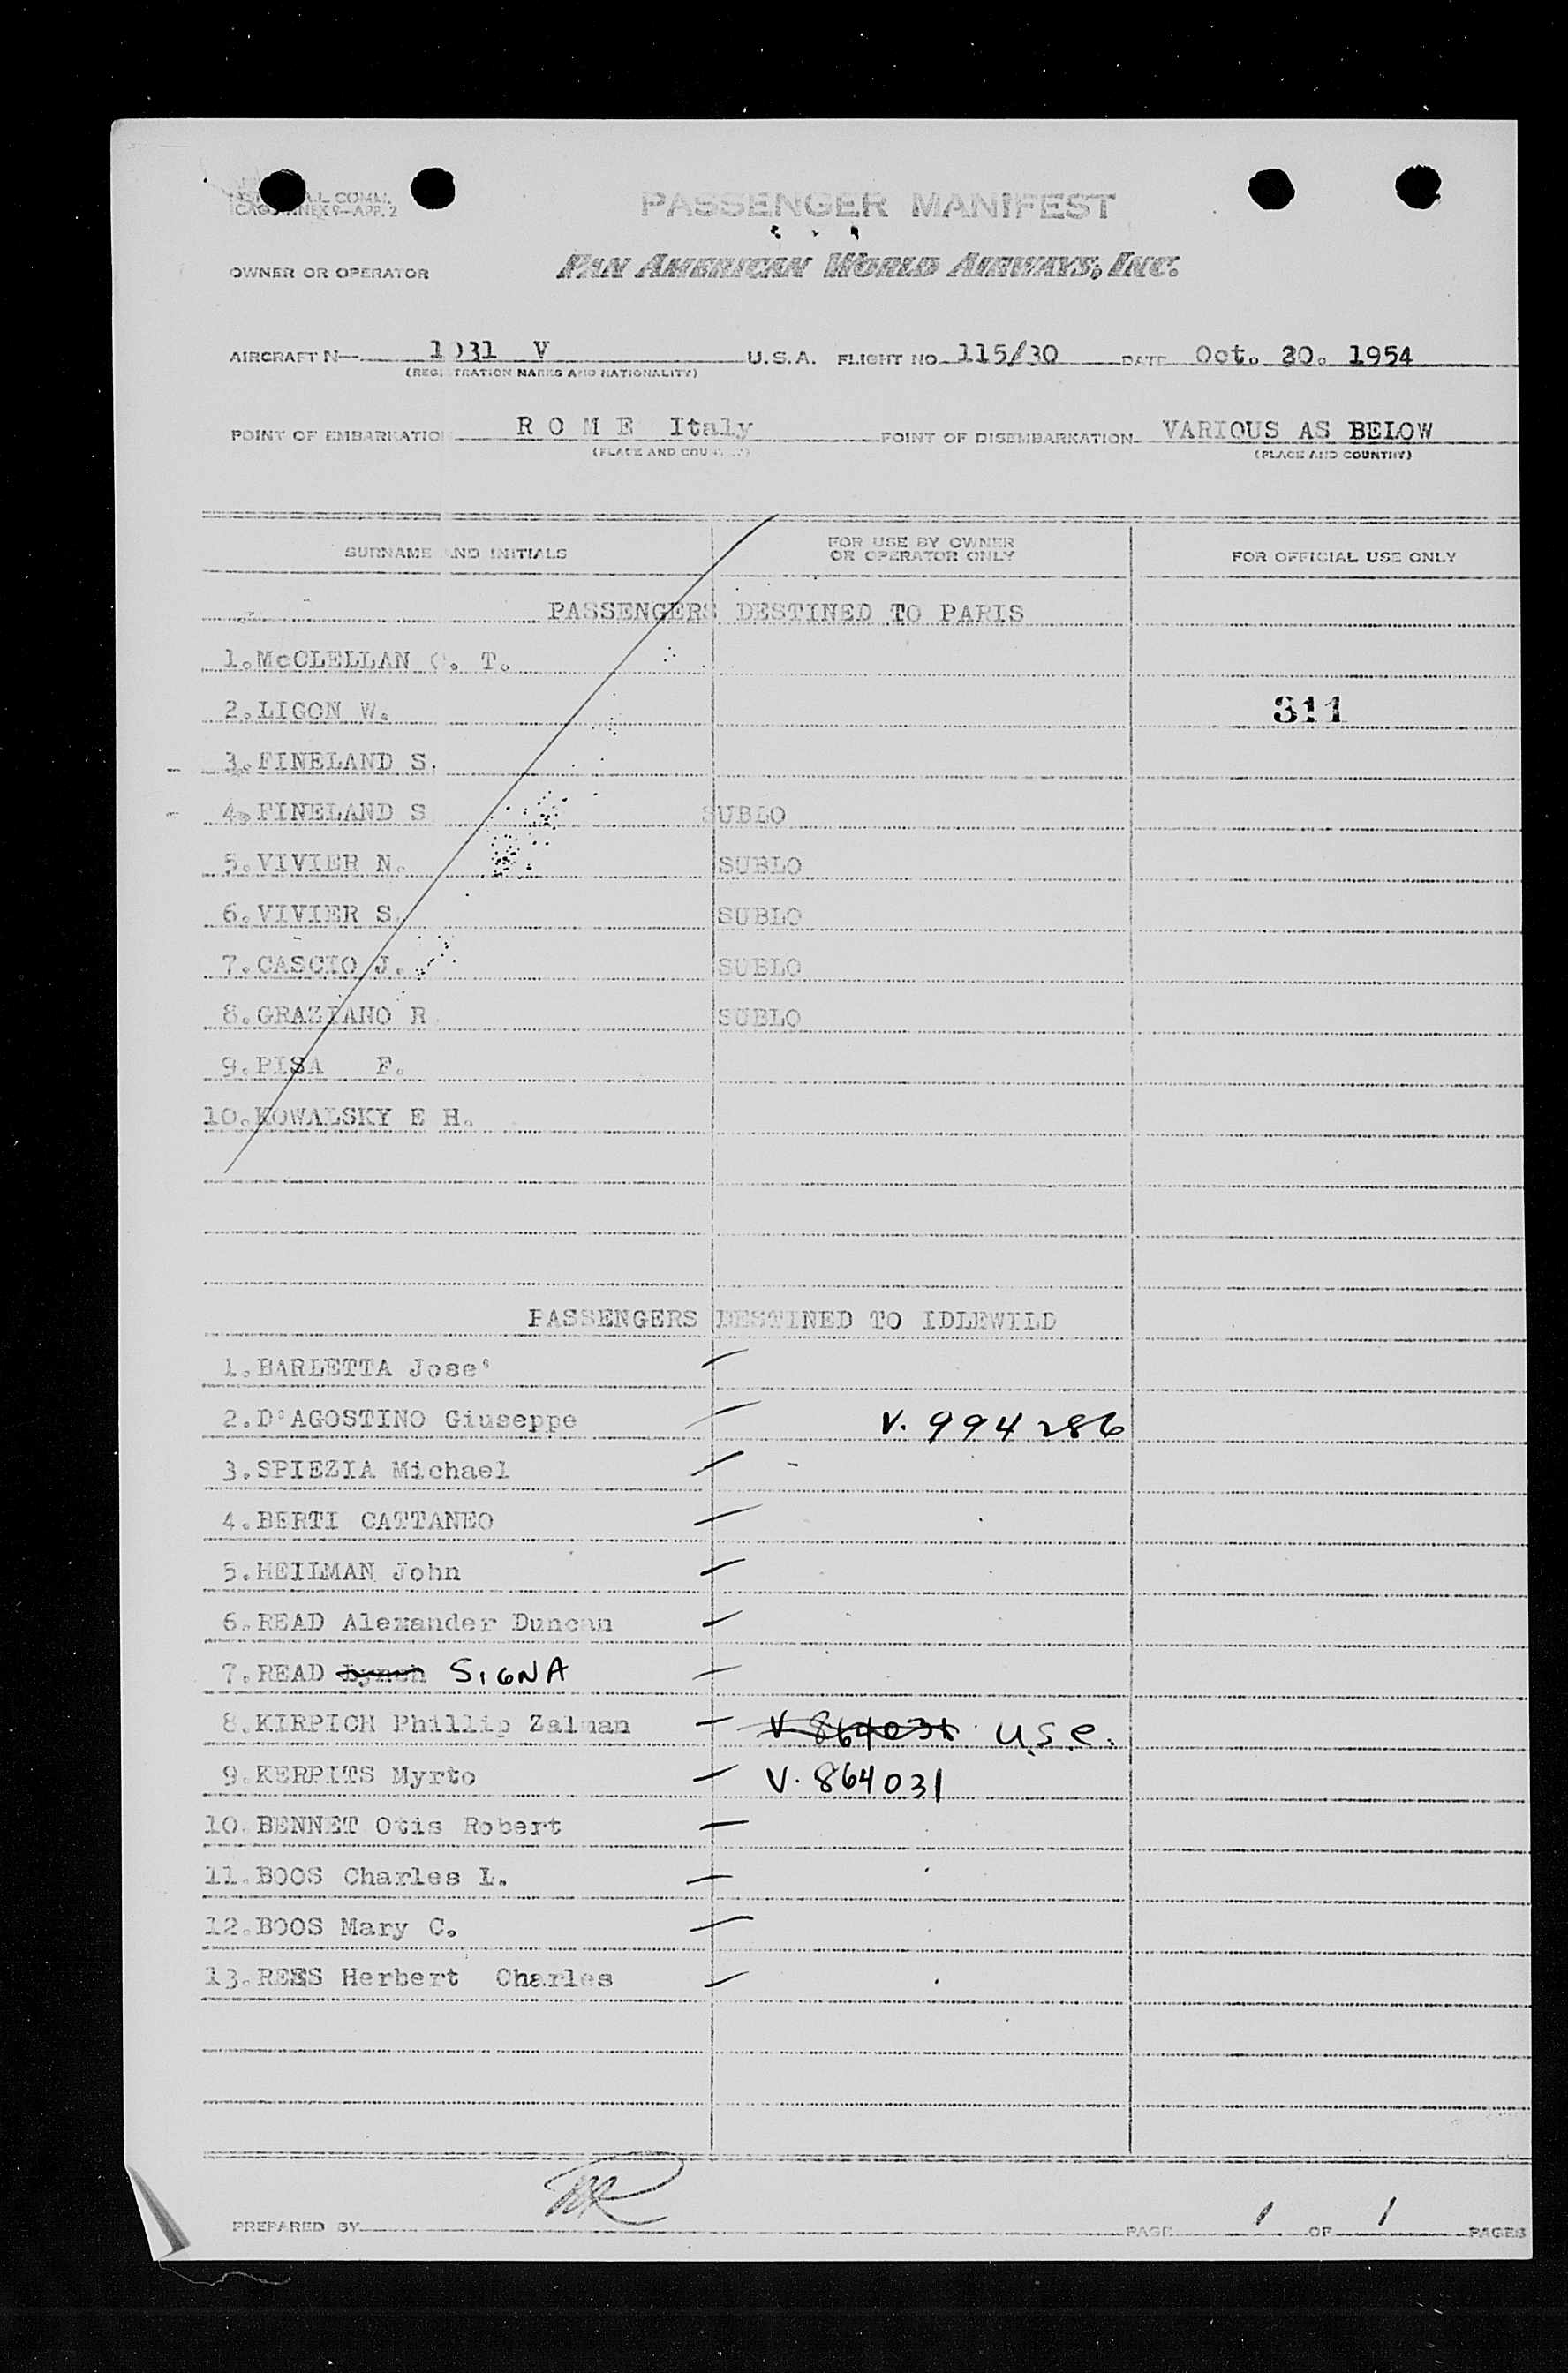 CAO ANNEX 9—APP. 2
PASSENGER MANIFEST
OWNER OR OPERATOR PAN AMERICAN WORLD AIRWAYS, INC.
AIRCRAFT N— 1031 V U.S.A. FLIGHT NO 115/30 DATE Oct. 30. 1954
(REGISTRATION MARKS AND NATIONALITY)
POINT OF EMBARKATION R O M E Italy POINT OF DISEMBARKATION VARIOUS AS BELOW
(PLACE AND COUNTRY) (PLACE AND COUNTRY)
SURNAME AND INITIALS FOR USE BY OWNER OR OPERATOR ONLY FOR OFFICIAL USE ONLY
PASSENGERS DESTINED TO PARIS
1. McCLELLAN C. T.
2. LIGON W. 311
3. FINELAND S.
4. FINELAND S SUBLO
5. VIVIER N. SUBLO
6. VIVIER S. SUBLO
7. CASCIO J. SUBLO
8. GRAZIANO R SUBLO
9. PISA F.
10. KOWALSKY E H.
PASSENGERS DESTINED TO IDLEWILD
1. BARLETTA Jose'
2. D'AGOSTINO Giuseppe V. 994286
3. SPIEZIA Michael
4. BERTI CATTANEO
5. HEILMAN John
6. READ Alexander Duncan
7. READ Lynch SIGNA
8. KIRPICH Phillip Zalman V. 864031 U.S.C.
9. KERPITS Myrto V. 864031
10. BENNET Otis Robert
11. BOOS Charles L.
12. BOOS Mary C.
13. REES Herbert Charles
PREPARED BY PAGE 1 OF 1 PAGES